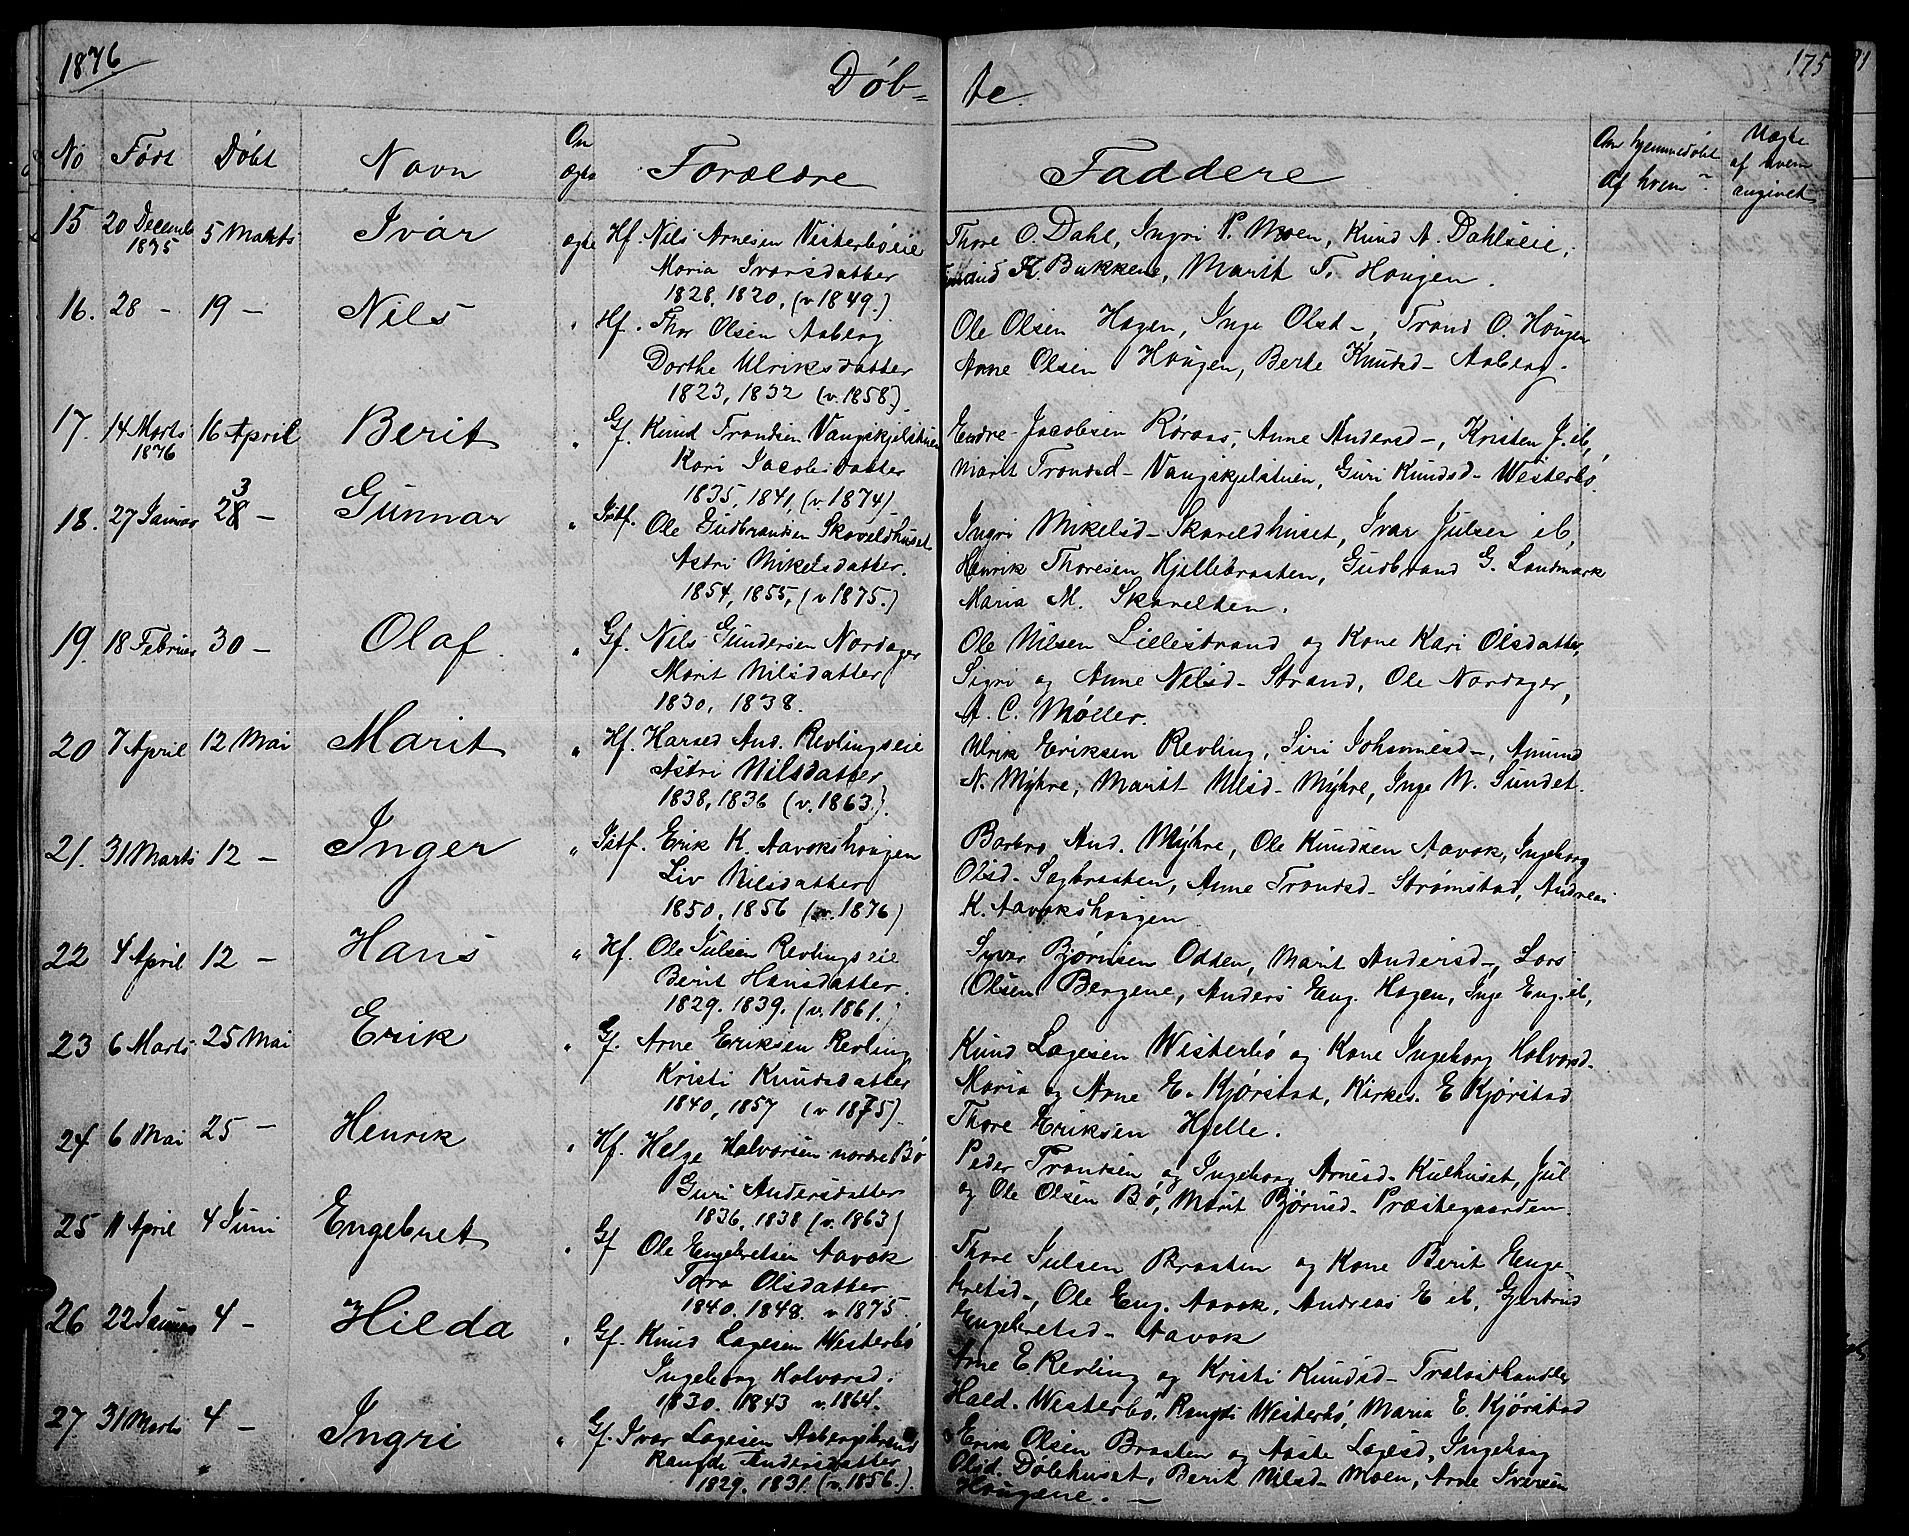 1876
Døb= te
175
No Født Døbt Navn Om ægte Forældre Faddere Om hjemmedøbt af hvem? Uægte af hvem angivet
15 20 Decemb 1875 5 Marts Ivar ægte Hf. Nils Arnesen Visterbøeie Thore O. Dahl, Ingri P. Moen, Knud A. Dahlseie,
Maria Ivarsdatter K. Bakkene, Marit T. Hougen.
1828, 1820, (v 1849.)
16. 28 - 19 - Nils " Hf. Thor Olsen Aaberg Ole Olsen Hagen, Inge Olsd -, Trond O. Hougen
Dorthe Ulriksdatter Arne Olsen Hougen, Berte Knudsd- Aaberg.
1823, 1832 (v. 1858.)
17. 14 Marts 1876 16 April Berit " Gf. Knud Trondsen Vangskjelstuen Endre Jacobsen Røraas, Anne Andersd-, Kristen J. ib,
Kari Jacobsdatter Marit Trondsd- Vangskjelstuen, Guri Knudsd- Westerbø.
1835, 1841, (v. 1874)
18. 27 Januar 23 - Gunnar " Istf. Ole Gudbrandsen Skoveldhuset Ingri Mikelsd- Skoveldhuset, Ivar Julsen ib,
Astri Mikelsdatter. Henrik Thoresen Hjellebraaten, Gudbrand G. Landmark
1854, 1855, (v 1875.) Maria M. Skavelden.
19. 18 Februar 30 - Olaf " Gf. Nils Gundersen Nordager Ole Nilsen Lillestrand og Kone Kari Olsdatter,
Marit Nilsdatter Sigri og Anne Nilsd- Strand, Ole Nordager,
1830, 1838. A. C. Møller.
20 7 April 12 Mai Marit " Hf. And. Revlingseie Ulrik Eriksen Revling, Siri Johannesd-, Amund
Astri Nilsdatter N. Myhre, Marit Nilsd- Myhre, Inge N. Sundet.
1838, 1836 (v. 1863.)
21. 31 Marts 12 - Inger " Istf. Erik K. Aavokshougen Barbro And. Myhre, Ole Knudsen Aavok, Ingeborg
Liv Nilsdatter Olsd- Sagbraaten, Anne Trondsd- Strømstad, Andreas
1850, 1856 (v. 1876) K. Aavokshougen
22 4 April 12 - Hans " Hf. Ole Julsen Revlingseie Syver Bjørnsen Odden, Marit Andersd-, Lars
Berit Hansdatter. Olsen Bergene, Anders Eng. Hagen, Inge Eng. ib,
1829. 1839. (v. 1861.)
23 6 Marts 25 Mai Erik " Gf. Arne Eriksen Revling Knud Lagesen Westerbø og Kone Ingeborg Halvorsd-
Kristi Knudsdatter Maria og Arne E. Kjørstad, Kirkes. E Kjørstad
1840, 1857 (v 1875). Thore Eriksen Hjelle.
24 6 Mai 25 - Henrik " Hf. Helge Halvorsen nordre Bø Peder Trondsen og Ingeborg Arnesd- Kulhuset, Jul
Guri Andersdatter og Ole Olsen Bø, Marit Bjørnsd- Præstegaarden.
1836, 1838 (v. 1863)
25 11 April 4 Juni Engebret " Gf Ole Engebretsen Aavok Thore Julsen Braaten og Kone Berit Enge-
Tora Olsdatter bretsd-, Ole Eng. Aavok, Andreas E ib, Gjertrud
1840. 1848. v 1875 Engebretsd- Aavok
26 22 Januar 4 - Hilda " Gf. Knud Lagesen Westerbø Arne E. Revling og Kristi Knudsd- Trelasthandler
Ingeborg Halvorsd. Hald. Westerbø, Rangdi Westerbø, Maria E. Kjørstad
1830. 1843 v. 1864.
27. 31 Marts 4 - Ingri " Gf. Ivar Lagesen Erik Olsen Braaten og Aaste Lagesd, Ingeborg
Rangdi Andersdatter Olsd. Dølehuset, Berit Nilsd- Moen, Arne Iversen
1829. 1831. (v. 1856.) Hougene. -